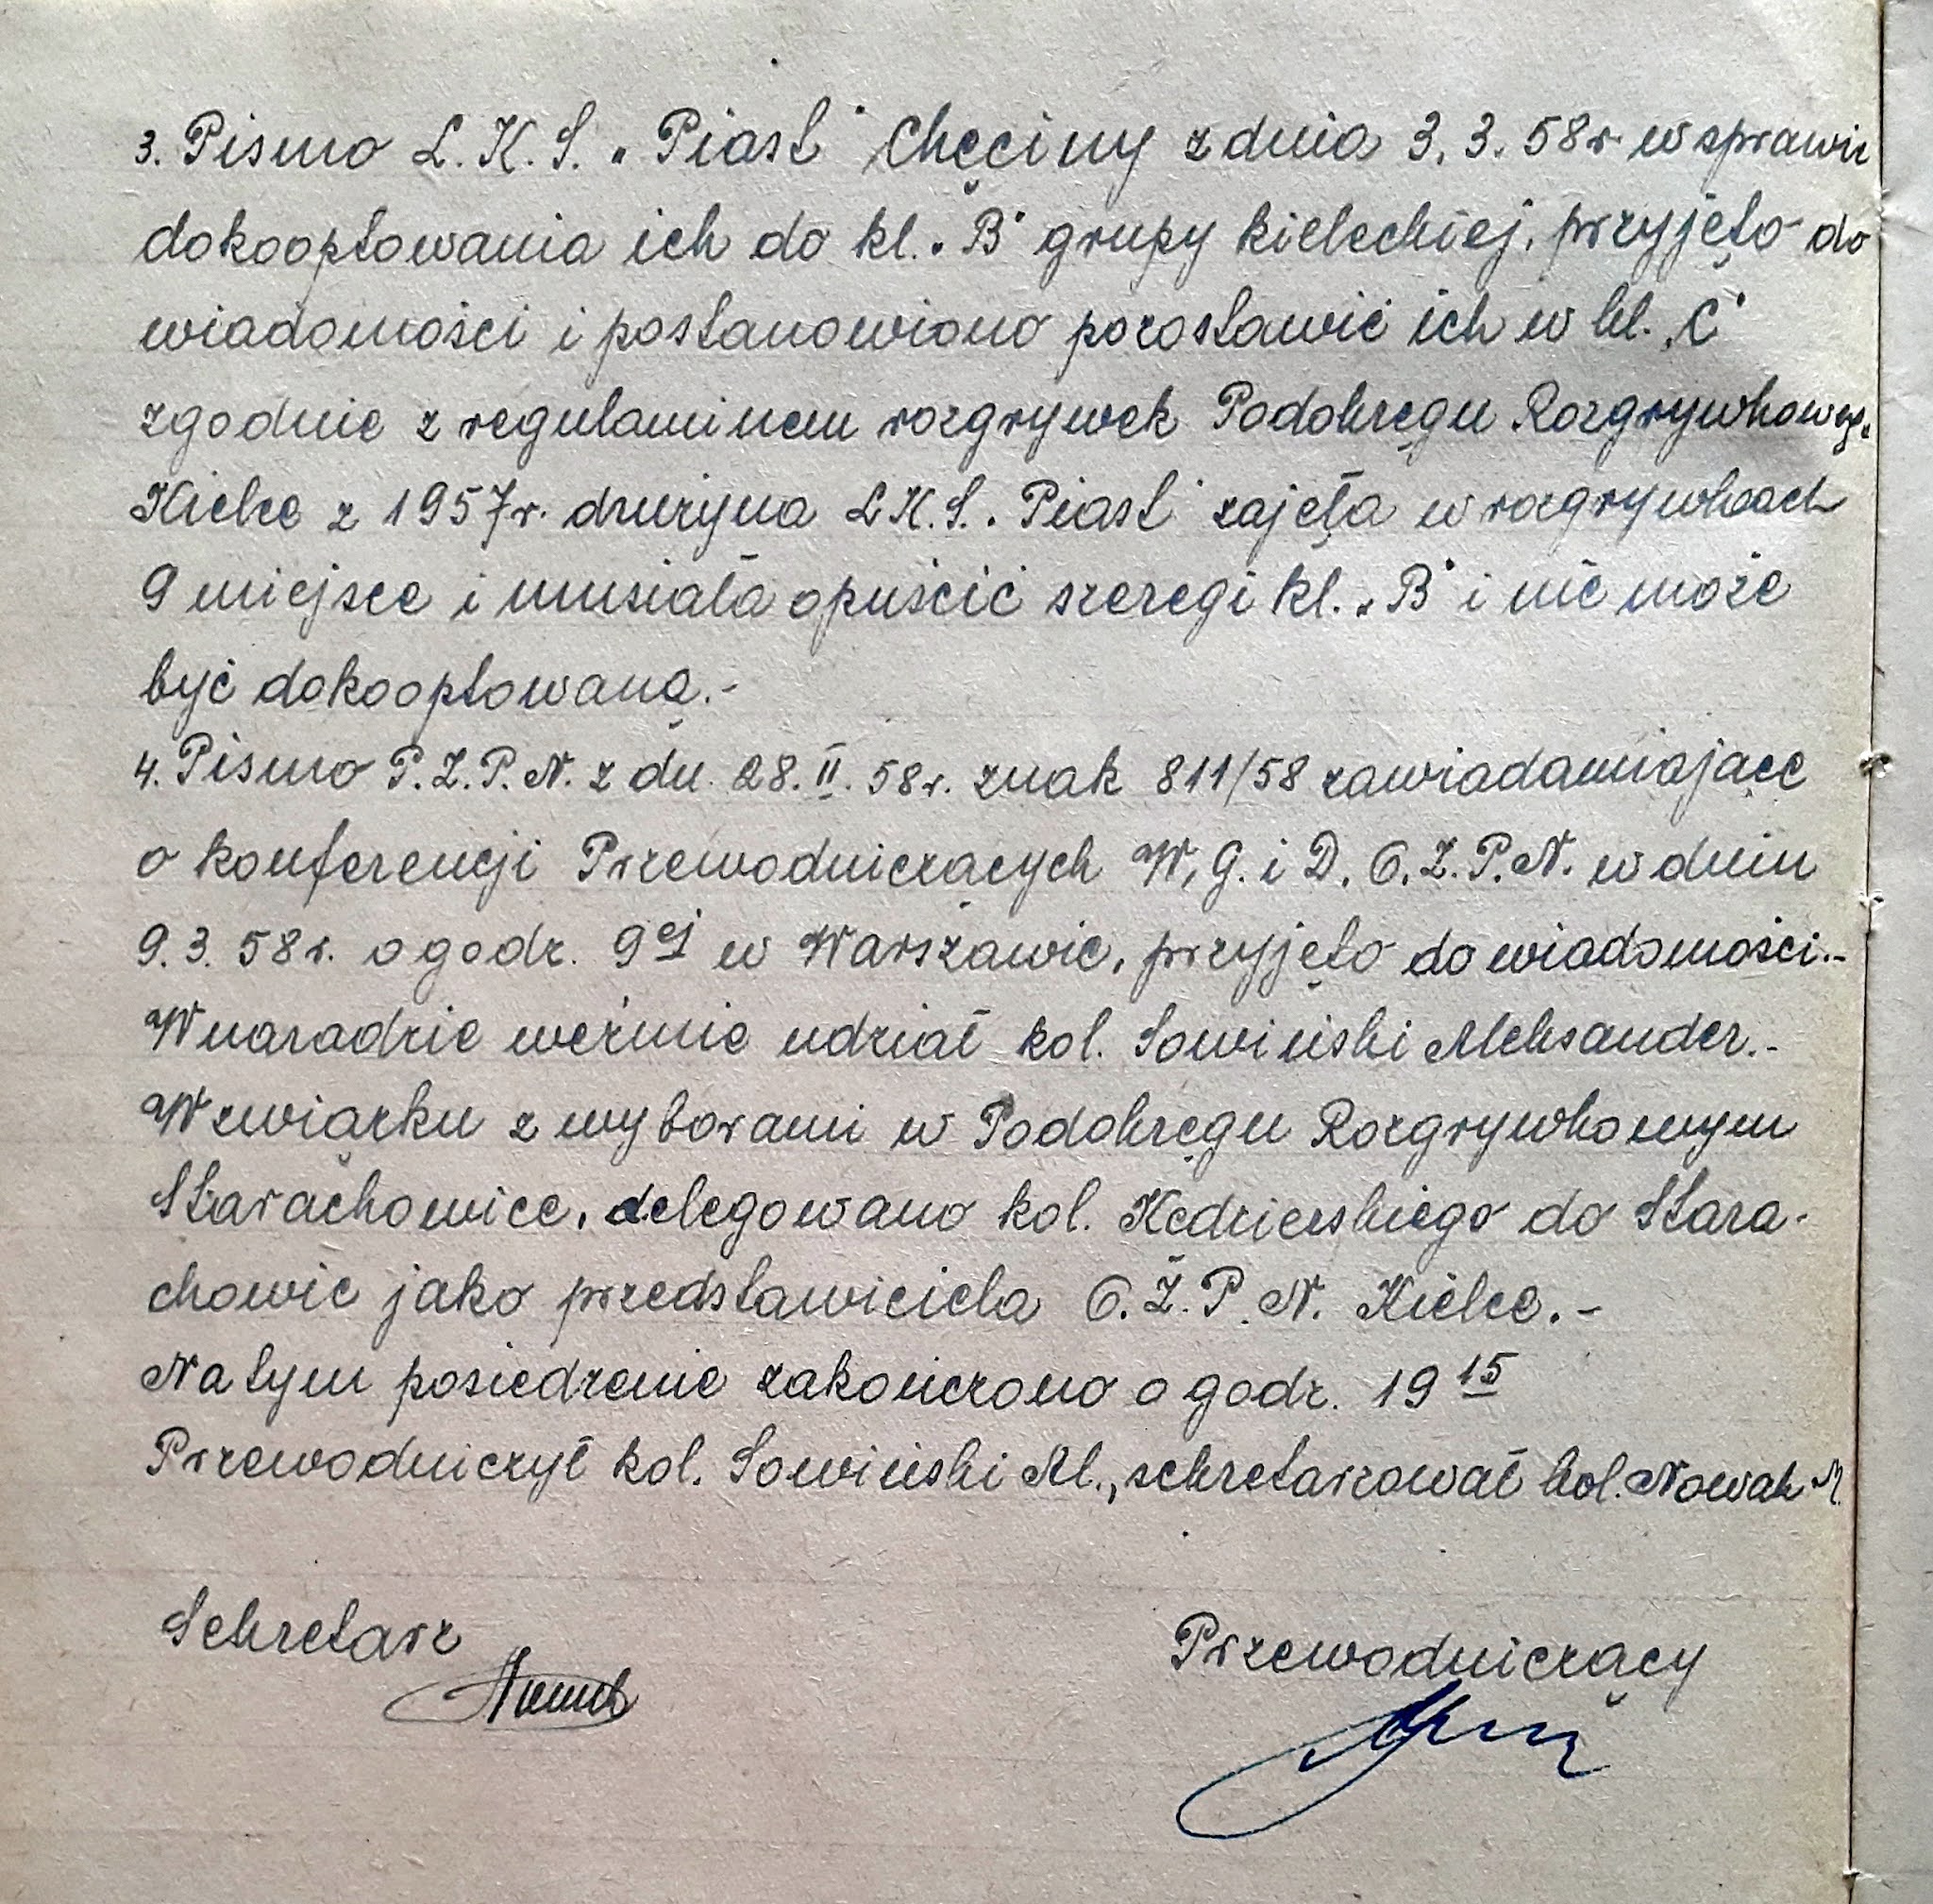 3. Pismo L.K.S. „Piast" Chęciny z dnia 3.3.58r w sprawie
dokooptowania ich do kl. „B" grupy kieleckiej, przyjęto do
wiadomości i postanowiono pozostawić ich w kl. „C"
zgodnie z regulaminem rozgrywek Podokręgu Rozgrywkoweg.
Kielce z 1957r. drużyna LK.S. „Piast" zajęła w rozgrywkach
9 miejsce i musiała opuścić szeregi kl. „B" i nie może
być dokooptowaną.-
4. Pismo P.Z.P.N. z dn. 28.II.58r. znak 811/58 zawiadamiające
o konferencji Przewodniczących W.G. i D. O.Z.P.N. w dniu
9.3.58r. o godz. 9ej w Warszawie, przyjęto do wiadomości.-
W naradzie weźmie udział kol. Sowiński Aleksander.-
W związku z wyborami w Podokręgu Rozgrywkowym
Starachowice, delegowano kol. Kędzierskiego do Stara-
chowic jako przedstawiciela O.Z.P.N. Kielce.-
Na tym posiedzenie zakończono o godz. 19 15
Przewodniczył kol. Sowiński Al., sekretarzował kol. Nowak M.
Sekretarz
Nowak
Przewodniczący